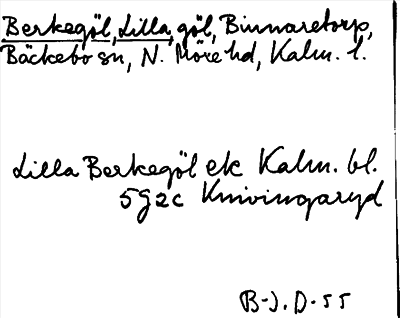 Berkegöl, Lilla, göl, Binnaretorp,
Bäckebo sn, N. Möre hd, Kalm. l.
Lilla Berkegöl ek Kalm. bl.
5g2c Knivingaryd
B-J. D-55